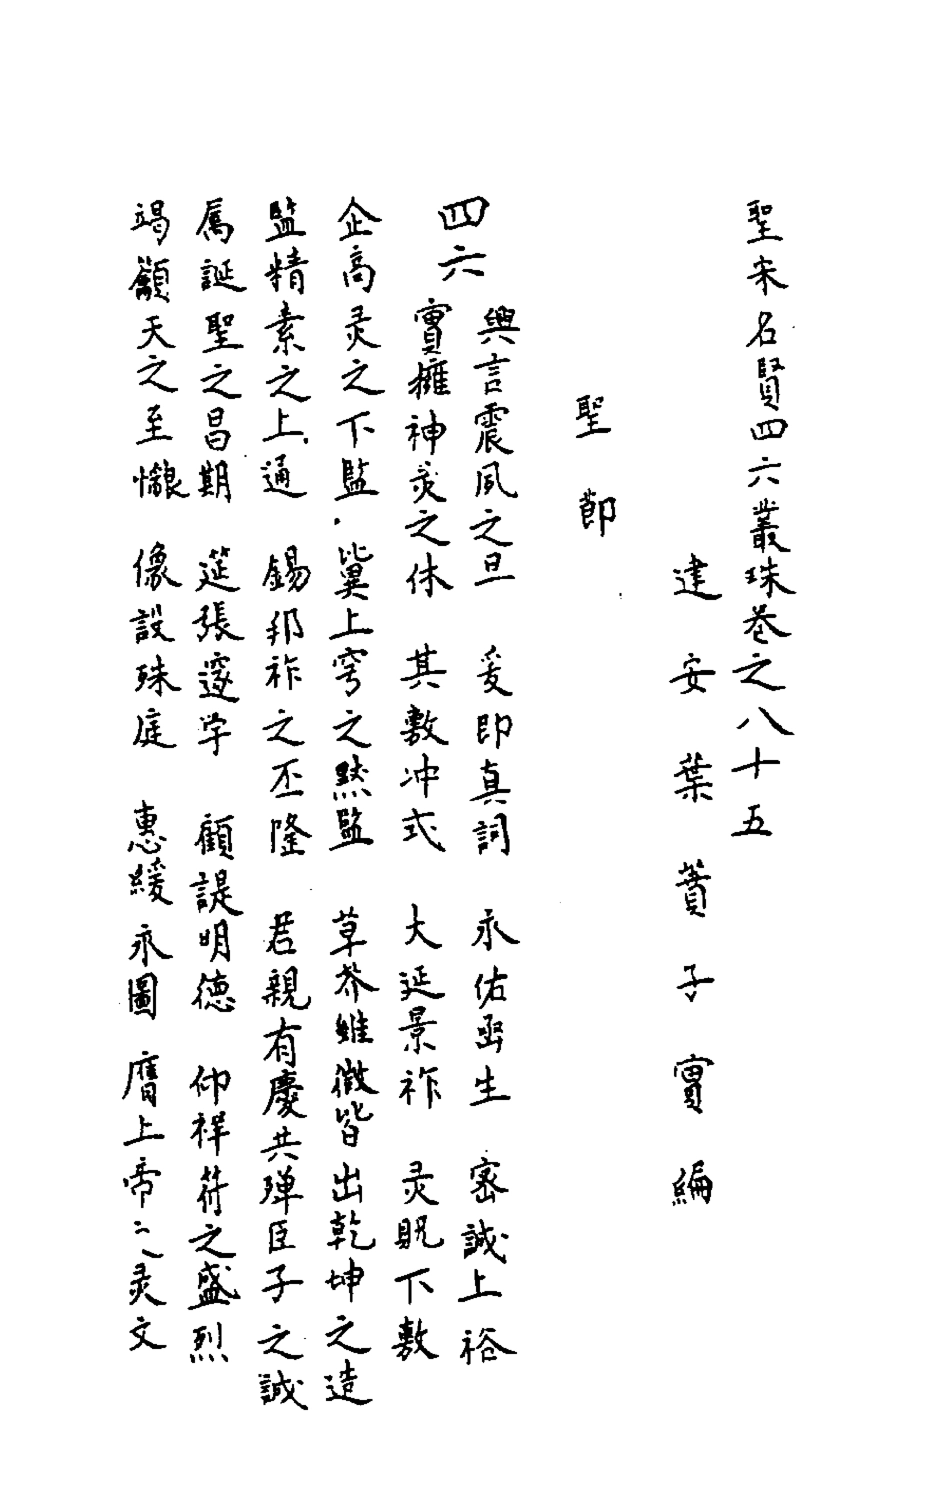 聖宋名賢四六叢珠卷之八十五
建安葉蕡子實編
聖節
四六
與言震夙之旦 爰即真詞 永佑函生 密誠上裕
實擁神灵之休 其敷冲式 大延景祚 灵貺下敷
企高灵之下監 冀上穹之黙監 草芥雖微皆出乾坤之造
監精素之上通 錫邦祚之丕隆 君親有慶共殚臣子之誠
属誕聖之昌期 莚張邃学 顧諟明德 仰祥符之盛烈
竭籲天之至懇 像設殊庭 惠綏永圖 膺上帝二灵文